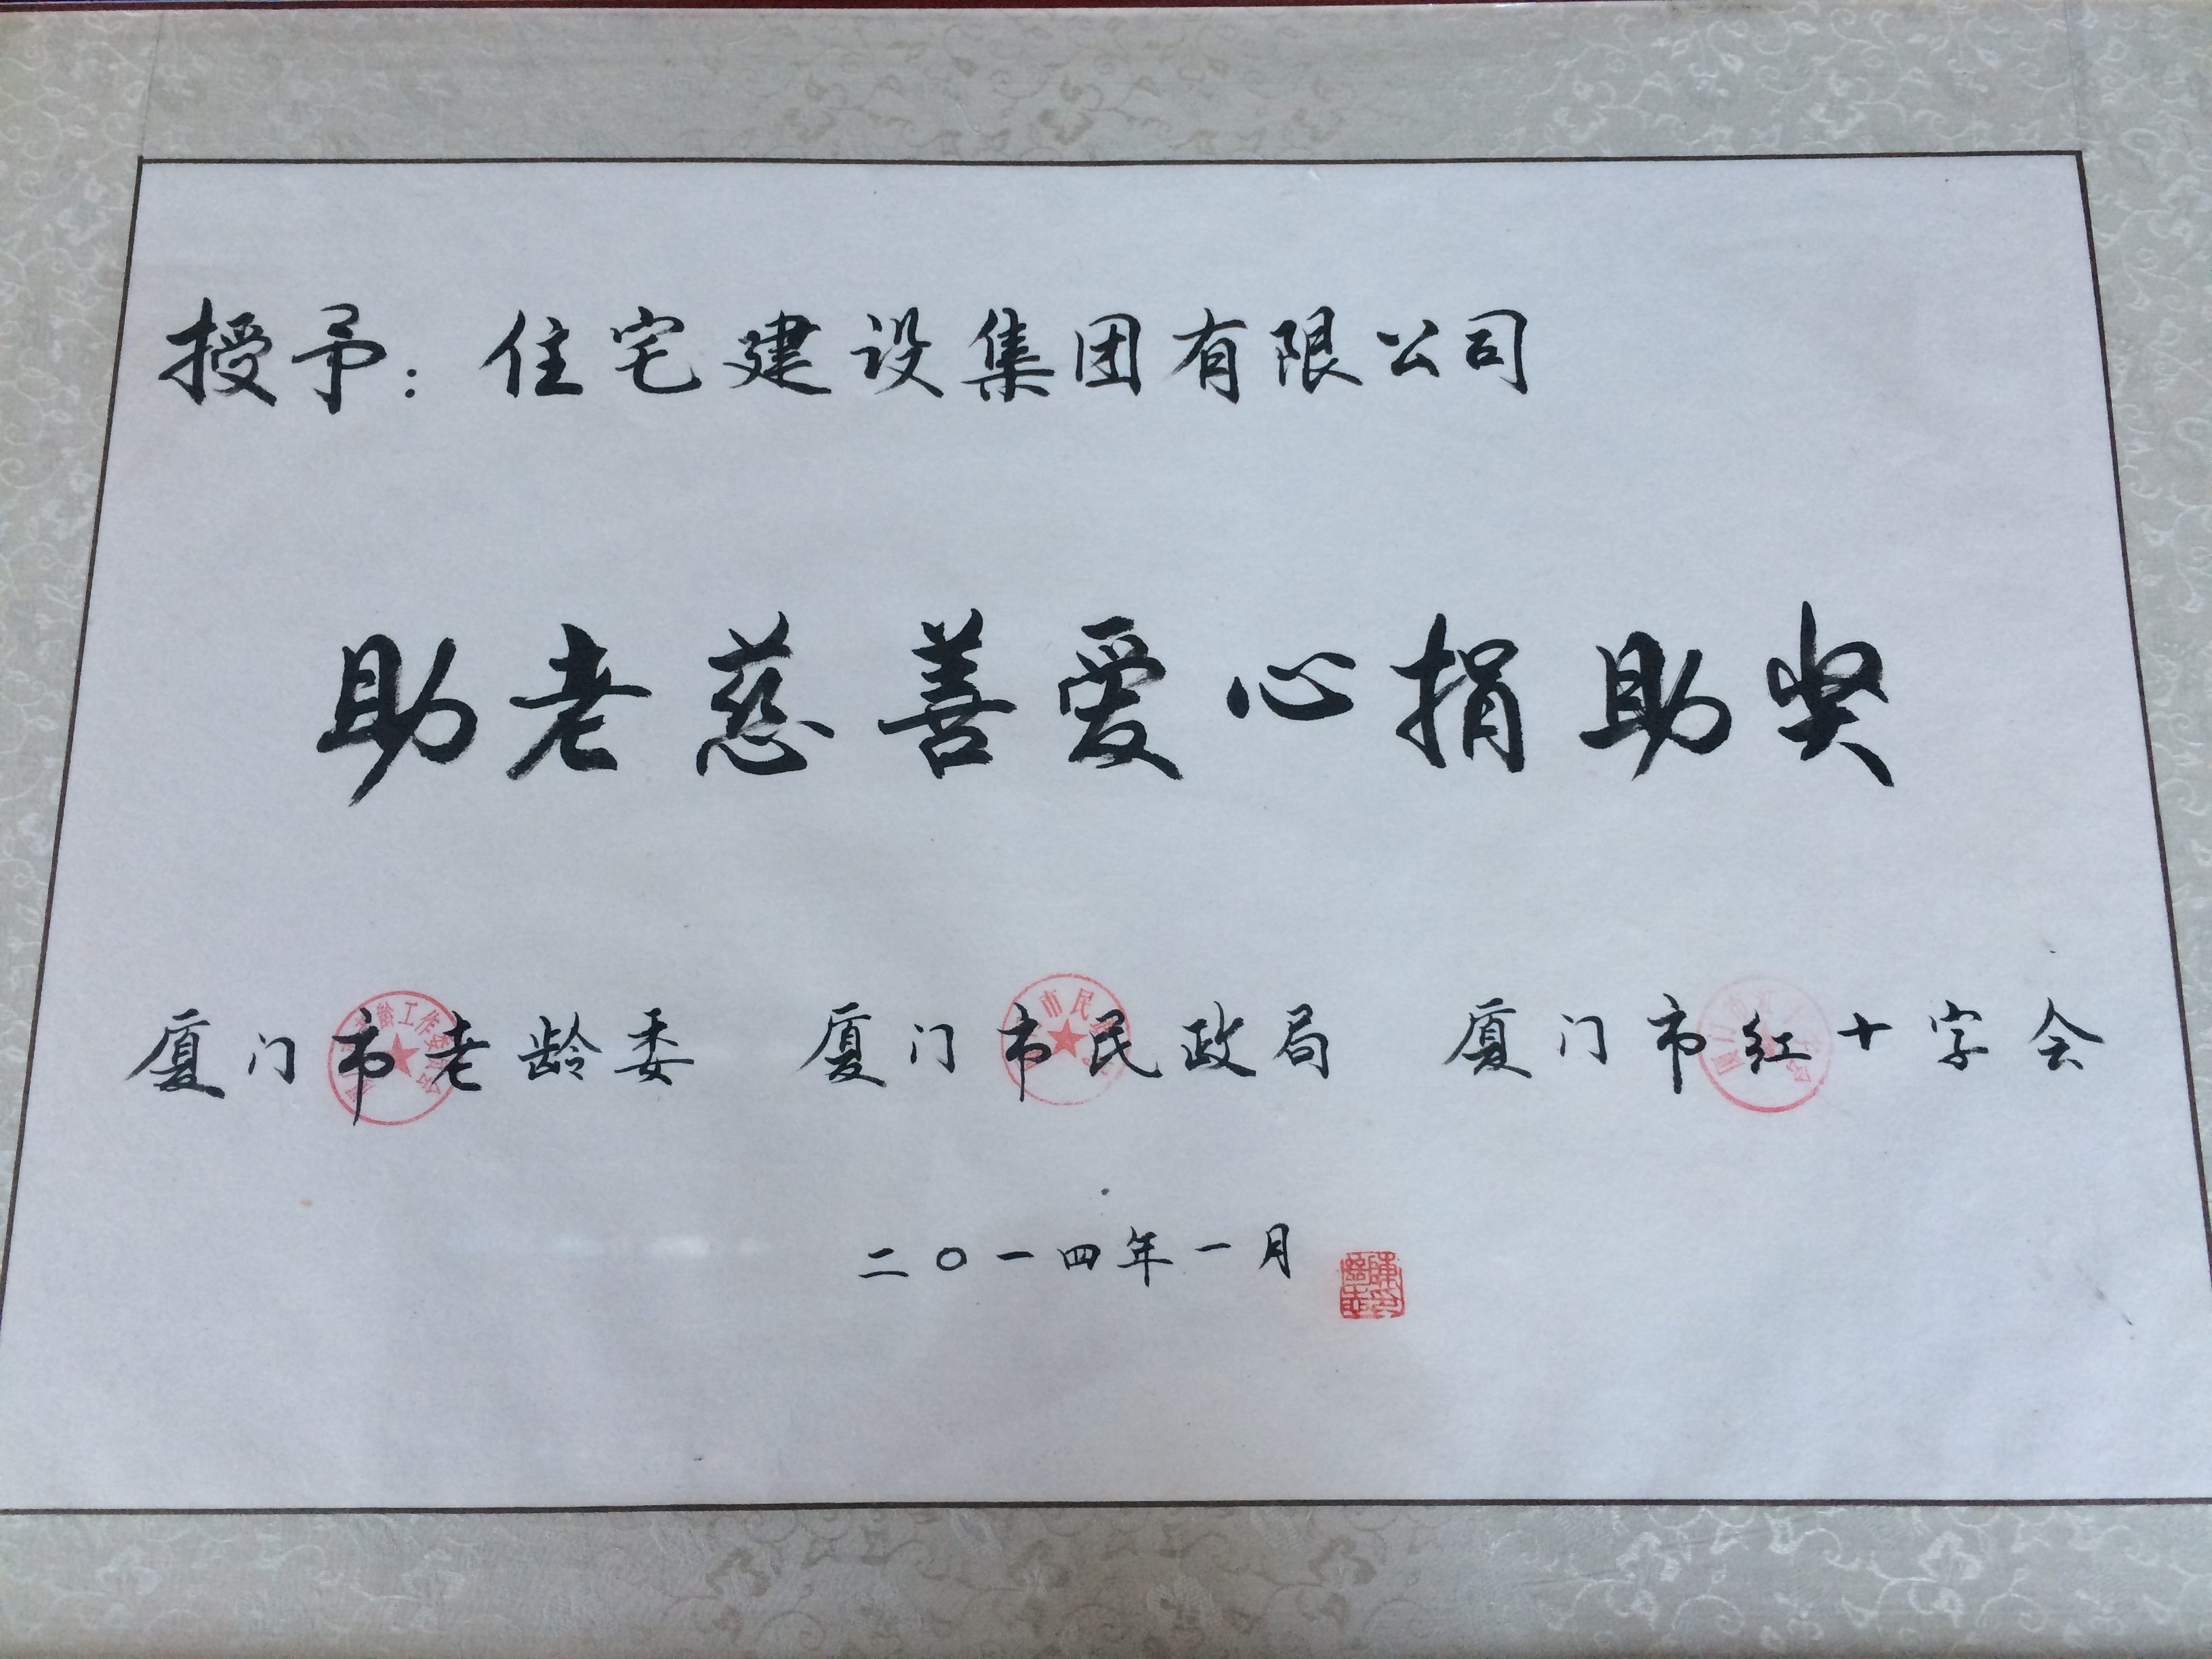 授予：住宅建设集团有限公司
助老慈善爱心捐助奖
厦门市老龄委 厦门市民政局 厦门市红十字会
二〇一四年一月